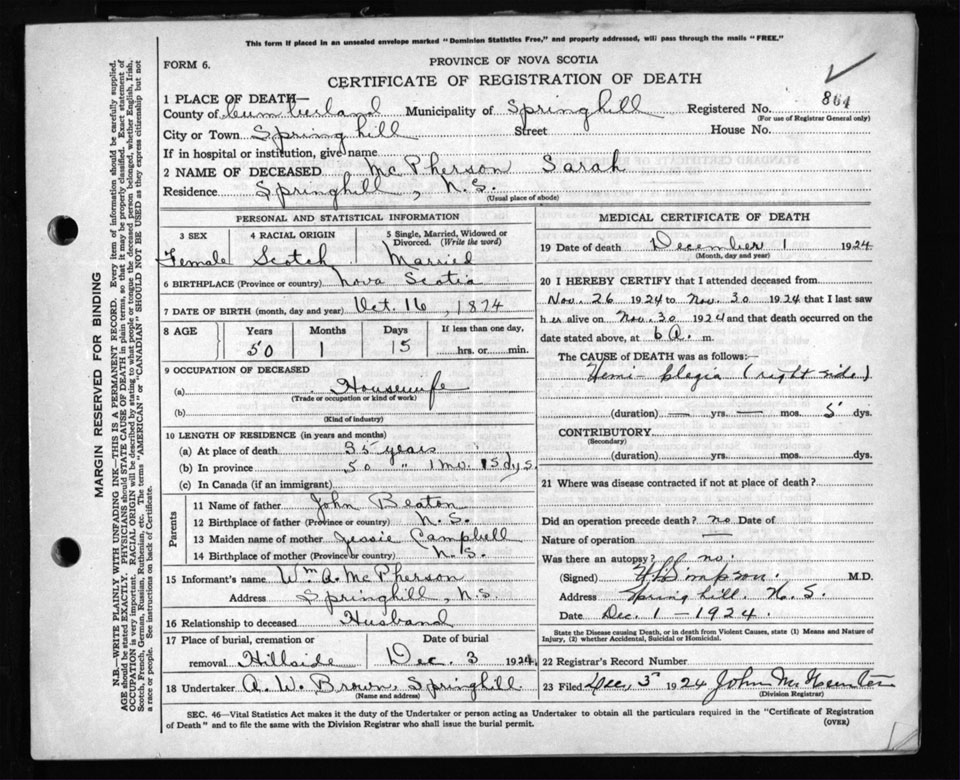 This form if placed in an unsealed envelope marked "Dominion Statistics Free," and properly addressed, will pass through the mails "FREE."
FORM 6.
PROVINCE OF NOVA SCOTIA
CERTIFICATE OF REGISTRATION OF DEATH
1 PLACE OF DEATH—
County of Cumberland Municipality of Springhill Registered No. 864
(For use of Registrar General only)
City or Town Springhill Street House No.
If in hospital or institution, give name
2 NAME OF DECEASED McPherson Sarah
Residence Springhill, N.S.
(Usual place of abode)
PERSONAL AND STATISTICAL INFORMATION
3 SEX 4 RACIAL ORIGIN 5 Single, Married, Widowed or Divorced. (Write the word)
Female Scotch Married
6 BIRTHPLACE (Province or country) Nova Scotia
7 DATE OF BIRTH (month, day and year) Oct. 16, 1874
8 AGE Years Months Days If less than one day,
50 1 15 hrs. or min.
9 OCCUPATION OF DECEASED
(a) Housewife
(Trade or occupation or kind of work)
(b)
(Kind of industry)
10 LENGTH OF RESIDENCE (in years and months)
(a) At place of death 35 years
(b) In province 50 " 1 mo. 15 dys.
(c) In Canada (if an immigrant)
Parents
11 Name of father John Beaton
12 Birthplace of father (Province or country) N.S.
13 Maiden name of mother Jessie Campbell
14 Birthplace of mother (Province or country) N.S.
15 Informant's name Wm A. McPherson
Address Springhill, N.S.
16 Relationship to deceased Husband
17 Place of burial, cremation or Date of burial
removal Hillside Dec. 3 1924
18 Undertaker A. W. Brown, Springhill
(Name and address)
MEDICAL CERTIFICATE OF DEATH
19 Date of death December 1 1924
(Month, day and year)
20 I HEREBY CERTIFY that I attended deceased from
Nov. 26 1924 to Nov. 30 1924 that I last saw
h er alive on Nov. 30 1924 and that death occurred on
date stated above, at 6 A. m.
The CAUSE of DEATH was as follows:—
Hemi-plegia (right side)
(duration) — yrs. — mos. 5 dys.
CONTRIBUTORY
(Secondary)
(duration) yrs. mos. dys.
21 Where was disease contracted if not at place of death?
Did an operation precede death? no Date of
Nature of operation —
Was there an autopsy? no.
(Signed) Simpson. M.D.
Address Springhill. N.S.
Date Dec. 1 - 1924.
State the Disease causing Death, or in death from Violent Causes, state (1) Means and Nature of
Injury, (2) whether Accidental, Suicidal or Homicidal.
22 Registrar's Record Number
23 Filed Dec, 3 1924 John
(Division Registrar)
SEC. 46—Vital Statistics Act makes it the duty of the Undertaker or person acting as Undertaker to obtain all the particulars required in the "Certificate of Registration
of Death" and to file the same with the Division Registrar who shall issue the burial permit.
(OVER)
MARGIN RESERVED FOR BINDING
N.B.—WRITE PLAINLY WITH UNFADING INK—THIS IS A PERMANENT RECORD. Every item of information should be carefully supplied.
AGE should be stated EXACTLY. PHYSICIANS should STATE CAUSE OF DEATH in plain terms, so that it may be properly classified. Exact statement of
OCCUPATION is very important. RACIAL ORIGIN will be described by stating to what people or tongue the deceased person belonged, whether English, Irish,
Scotch, French, German, Russian, Ruthenian, etc. The terms "AMERICAN" or "CANADIAN" SHOULD NOT BE USED as they express citizenship but not
a race or people. See instructions on back of Certificate.